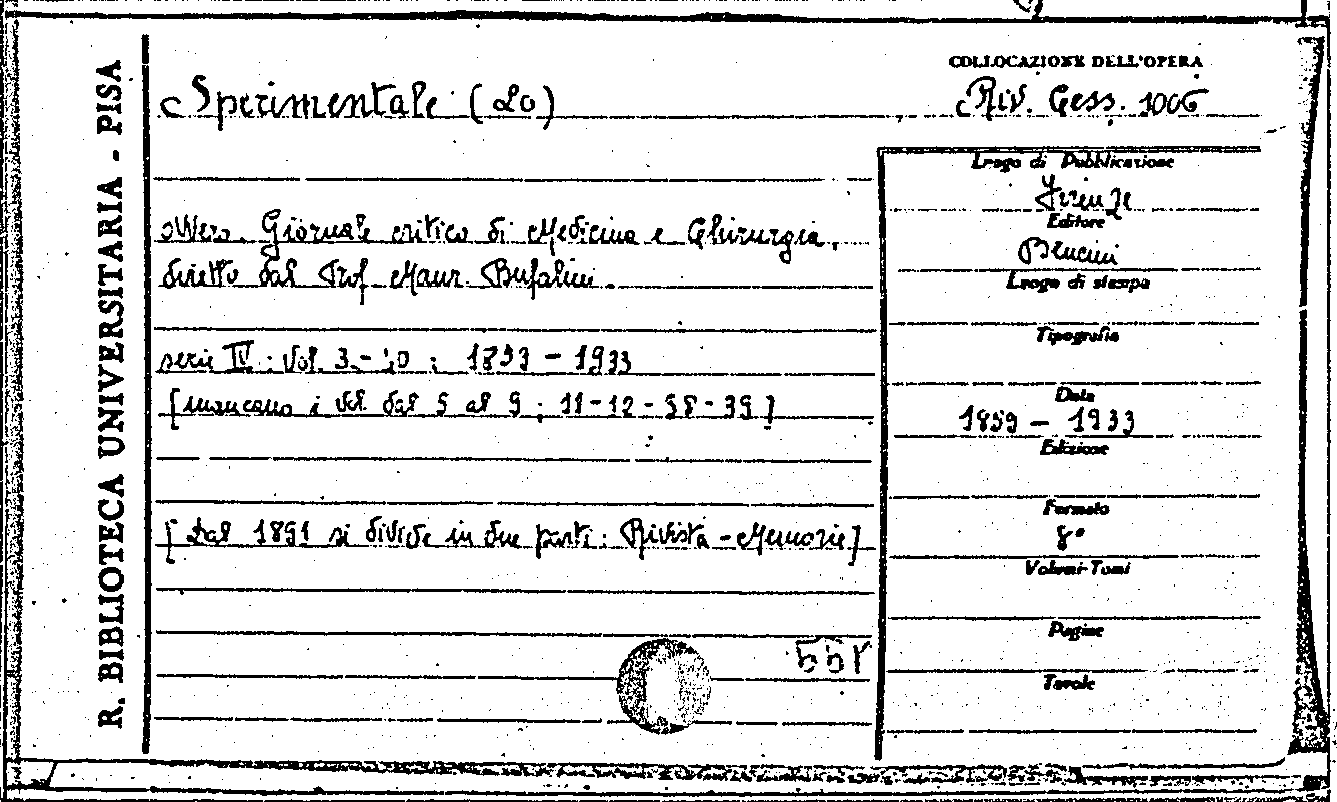 R. BIBLIOTECA UNIVERSITARIA - PISA
Sperimentale (Lo)
COLLOCAZIONE DELL'OPERA
Riv. Cess. 1006
ovvero Giornale critico di Medicina e Chirurgia,
diretto dal Prof. Maur. Bufalini.
serie IV : Vol. 3 : 1859 - 1933
[mancano i vol. dal 5 al 9 ; 11-12-38-39]
[Dal 1891 si divide in due parti: Rivista - Memorie]
Luogo di Pubblicazione
Firenze
Editore
Luogo di stampa
Tipografia
Data
1859 - 1933
Edizione
Formato
8°
Volumi-Tomi
Pagine
Tavole